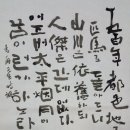 五百年 都邑地를
匹馬로 돌아드니
山川은 依舊하되
人傑은 간데없네
어즈버 太平烟月이
꿈이런가 하노라